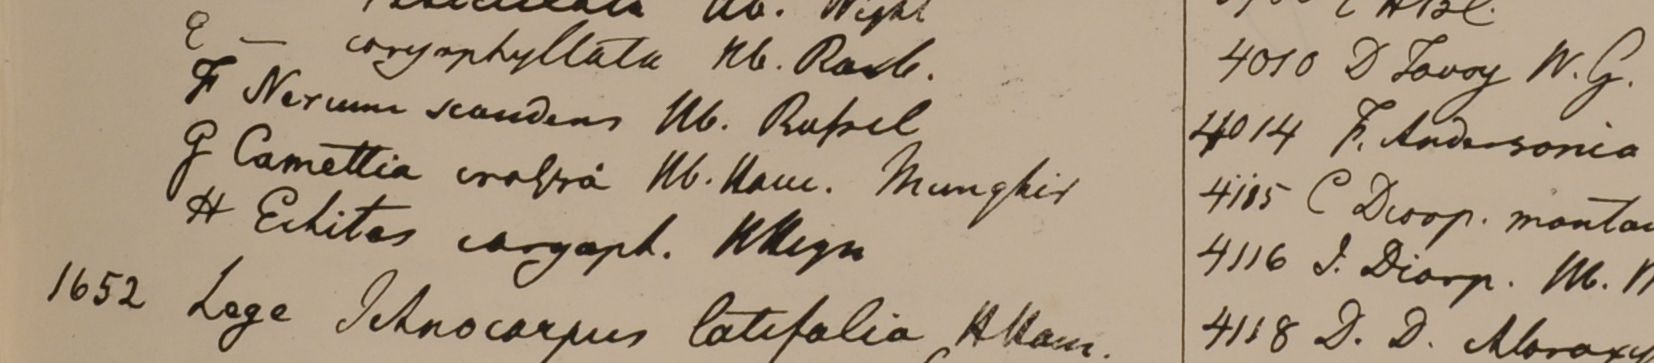 Hb. Wight
E — caryophyllata Hb. Roxb.
F Nerium scandens Hb. Rufsel
G Camettia Hb. Ham. Munghir
H Echites caryoph. HHeyn
1652 Lege Ichnocarpus latifolia HHam.
4010 D Tavoy W. G.
4014 F. Andersonia
4115 C Diosp. monta
4116 I. Diosp. Hb.
4118 D. D.